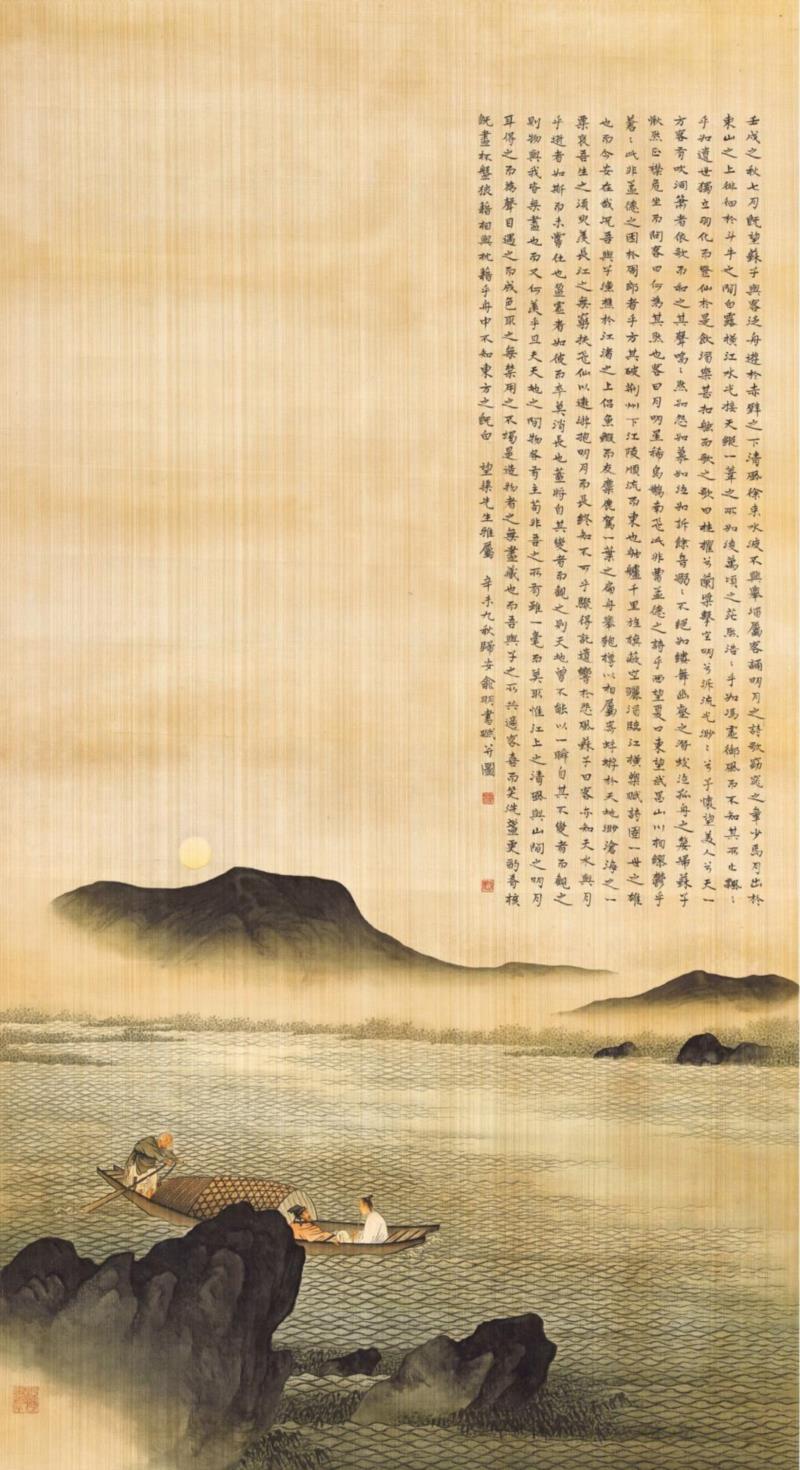 壬戌之秋七月既望蘇子與客泛舟遊於赤壁之下清風徐來水波不興舉酒屬客誦明月之詩歌窈窕之章少焉月出於
東山之上徘徊於斗牛之間白露橫江水光接天縱一葦之所如凌萬頃之茫然浩〻乎如馮虛御風而不知其所止飄〻
乎如遺世獨立羽化而登仙於是飲酒樂甚扣舷而歌之歌曰桂櫂兮蘭槳擊空明兮泝流光渺〻兮予懷望美人兮天一
方客有吹洞簫者依歌而和之其聲嗚〻然如怨如慕如泣如訴餘音嫋〻不絕如縷舞幽壑之潛蛟泣孤舟之嫠婦蘇子
愀然正襟危坐而問客曰何為其然也客曰月明星稀烏鵲南飛此非曹孟德之詩乎西望夏口東望武昌山川相繆鬱乎
蒼〻此非孟德之困於周郎者乎方其破荊州下江陵順流而東也舳艫千里旌旗蔽空釃酒臨江橫槊賦詩固一世之雄
也而今安在哉況吾與子漁樵於江渚之上侶魚蝦而友麋鹿駕一葉之扁舟舉匏樽以相屬寄蜉蝣於天地渺滄海之一
粟哀吾生之須臾羨長江之無窮挾飛仙以遨遊抱明月而長終知不可乎驟得託遺響於悲風蘇子曰客亦知夫水與月
乎逝者如斯而未嘗往也盈虛者如彼而卒莫消長也蓋將自其變者而觀之則天地曾不能以一瞬自其不變者而觀之
則物與我皆無盡也而又何羨乎且夫天地之間物各有主苟非吾之所有雖一毫而莫取惟江上之清風與山間之明月
耳得之而為聲目遇之而成色取之無禁用之不竭是造物者之無盡藏也而吾與子之所共適客喜而笑洗盞更酌肴核
既盡杯盤狼籍相與枕藉乎舟中不知東方之既白 望渠先生雅屬 辛未九秋歸安俞明書賦并圖